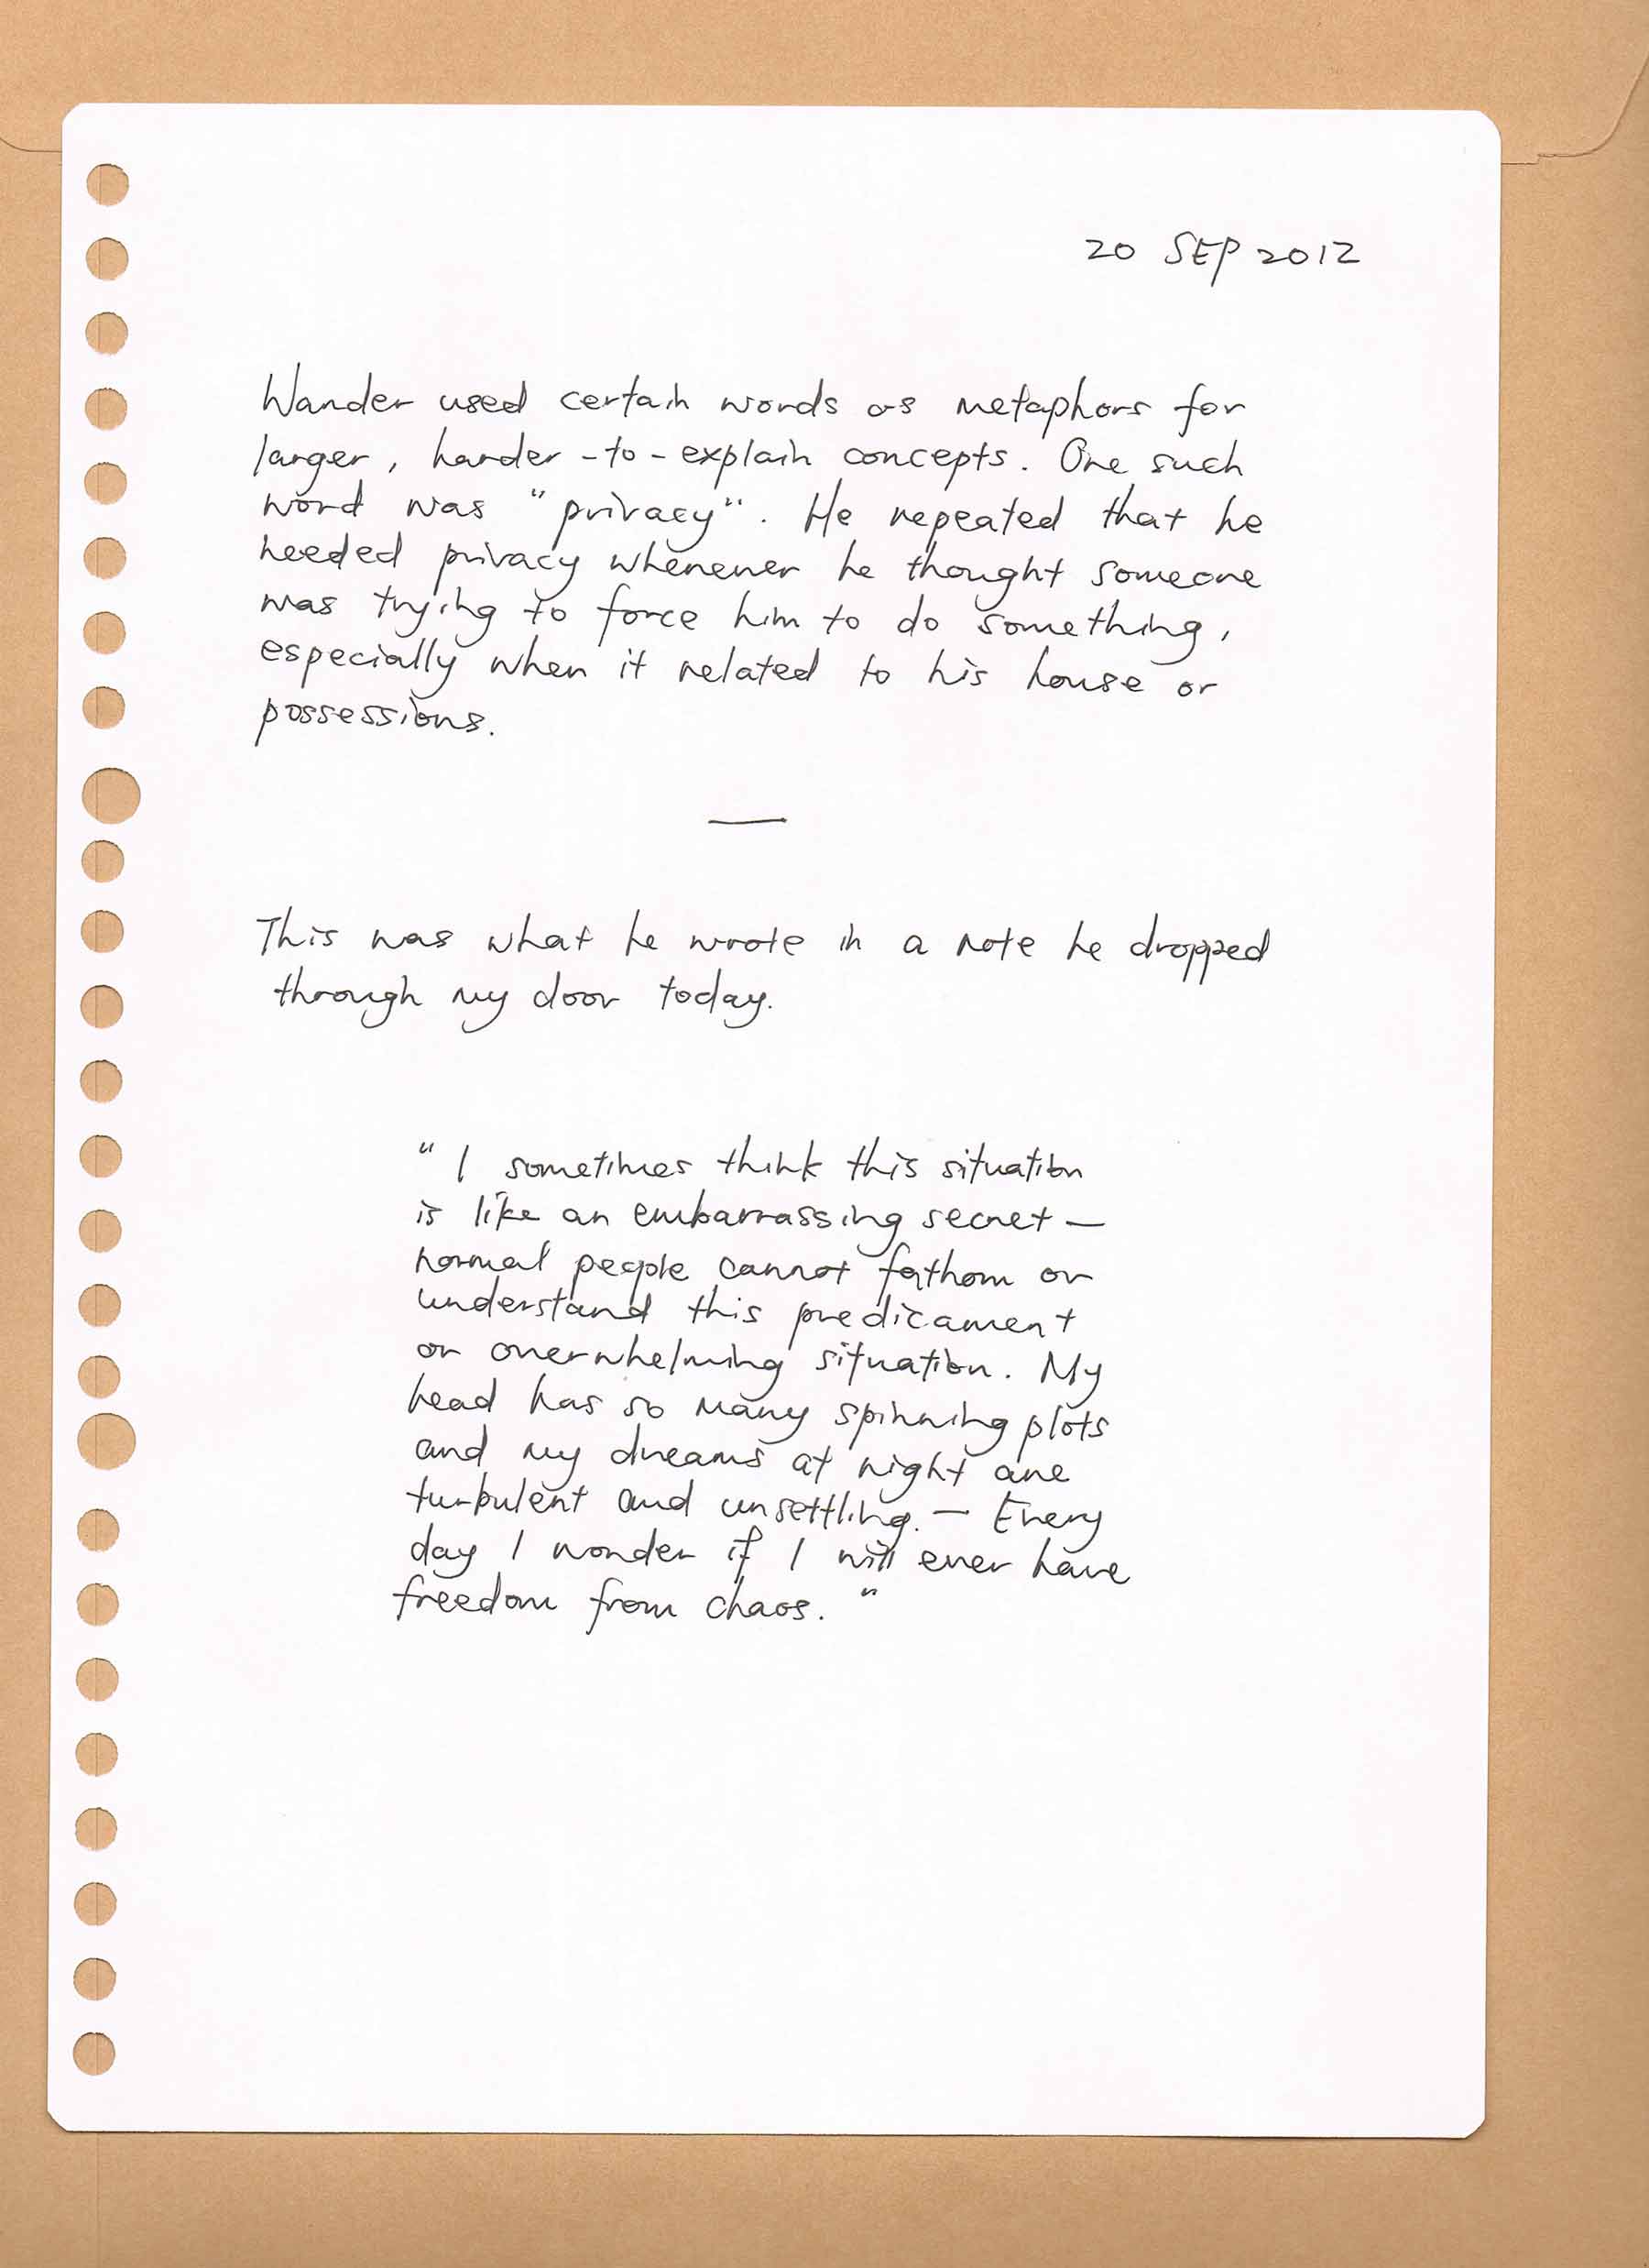 20 SEP 2012
Wander used certain words as metaphors for
larger, harder-to-explain concepts. One such
word was "privacy". He repeated that he
needed privacy whenever he thought someone
was trying to force him to do something,
especially when it related to his house or
possessions.
—
This was what he wrote in a note he dropped
through my door today.
"I sometimes think this situation
is like an embarrassing secret —
normal people cannot fathom or
understand this predicament
or overwhelming situation. My
head has so many spinning plots
and my dreams at night are
turbulent and unsettling. — Every
day I wonder if I will ever have
freedom from chaos."